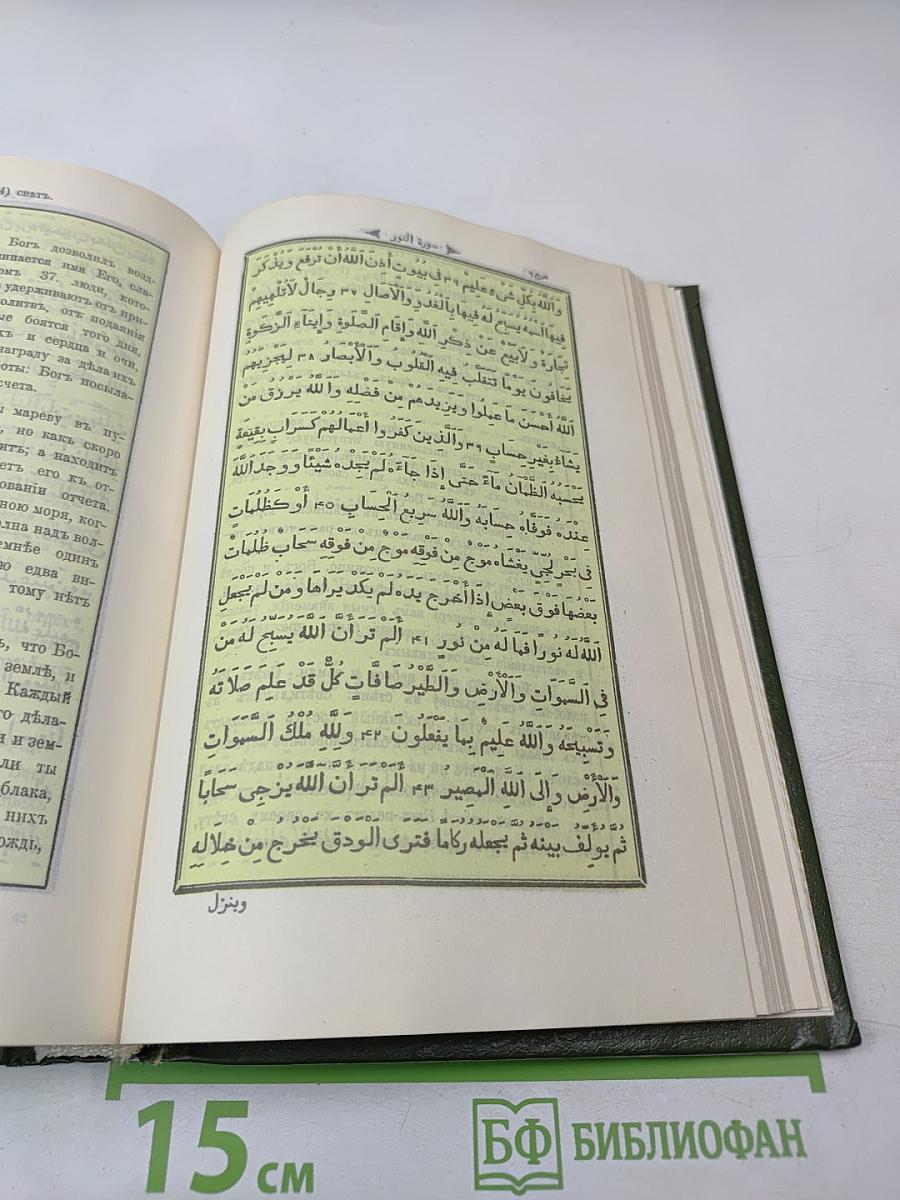 4) свѣтъ.
Богъ дозволилъ возд-
инается имя Его, сла-
омъ 37. люди, кото-
удерживаютъ отъ при-
олитвъ, отъ подаянія
ые боятся того дня,
хъ и сердца и очи,
награду за дѣла ихъ
роты: Богъ посыла-
счета.
мареву въ пу-
но какъ скоро
итъ; а находитъ
етъ его къ от-
ованіи отчета.
ною моря, ког-
лна надъ вол-
емнѣе одинъ
ю едва ви-
тому нѣтъ
что Бо-
землѣ, и
Каждый
то дѣла-
я и зем-
ли ты
блака,
нихъ
ождь,
سورة النور
٢٥٣
وَاللَّهُ بِكُلِّ شَيْءٍ عَلِيمٌ ٣٦ فِي بُيُوتٍ أَذِنَ اللَّهُ أَنْ تُرْفَعَ وَيُذْكَرَ
فِيهَا اسْمُهُ يُسَبِّحُ لَهُ فِيهَا بِالْغُدُوِّ وَالْآصَالِ ٣٧ رِجَالٌ لَا تُلْهِيهِمْ
تِجَارَةٌ وَلَا بَيْعٌ عَنْ ذِكْرِ اللَّهِ وَإِقَامِ الصَّلَوةِ وَإِيتَاءِ الزَّكَوةِ
يَخَافُونَ يَوْمًا تَتَقَلَّبُ فِيهِ الْقُلُوبُ وَالْأَبْصَارُ ٣٨ لِيَجْزِيَهُمُ
اللَّهُ أَحْسَنَ مَا عَمِلُوا وَيَزِيدَهُمْ مِنْ فَضْلِهِ وَاللَّهُ يَرْزُقُ مَنْ
يَشَاءُ بِغَيْرِ حِسَابٍ ٣٩ وَالَّذِينَ كَفَرُوا أَعْمَالُهُمْ كَسَرَابٍ بِقِيعَةٍ
يَحْسَبُهُ الظَّمْآنُ مَاءً حَتَّى إِذَا جَاءَهُ لَمْ يَجِدْهُ شَيْئًا وَوَجَدَ اللَّهَ
عِنْدَهُ فَوَفَّاهُ حِسَابَهُ وَاللَّهُ سَرِيعُ الْحِسَابِ ٤٠ أَوْ كَظُلُمَاتٍ
فِي بَحْرٍ لُجِّيٍّ يَغْشَاهُ مَوْجٌ مِنْ فَوْقِهِ مَوْجٌ مِنْ فَوْقِهِ سَحَابٌ ظُلُمَاتٌ
بَعْضُهَا فَوْقَ بَعْضٍ إِذَا أَخْرَجَ يَدَهُ لَمْ يَكَدْ يَرَاهَا وَمَنْ لَمْ يَجْعَلِ
اللَّهُ لَهُ نُورًا فَمَا لَهُ مِنْ نُورٍ ٤١ أَلَمْ تَرَ أَنَّ اللَّهَ يُسَبِّحُ لَهُ مَنْ
فِي السَّمَوَاتِ وَالْأَرْضِ وَالطَّيْرُ صَافَّاتٍ كُلٌّ قَدْ عَلِمَ صَلَاتَهُ
وَتَسْبِيحَهُ وَاللَّهُ عَلِيمٌ بِمَا يَفْعَلُونَ ٤٢ وَلِلَّهِ مُلْكُ السَّمَوَاتِ
وَالْأَرْضِ وَإِلَى اللَّهِ الْمَصِيرُ ٤٣ أَلَمْ تَرَ أَنَّ اللَّهَ يُزْجِي سَحَابًا
ثُمَّ يُؤَلِّفُ بَيْنَهُ ثُمَّ يَجْعَلُهُ رُكَامًا فَتَرَى الْوَدْقَ يَخْرُجُ مِنْ خِلَالِهِ
وينزل
15 см
БФ БИБЛИОФАН